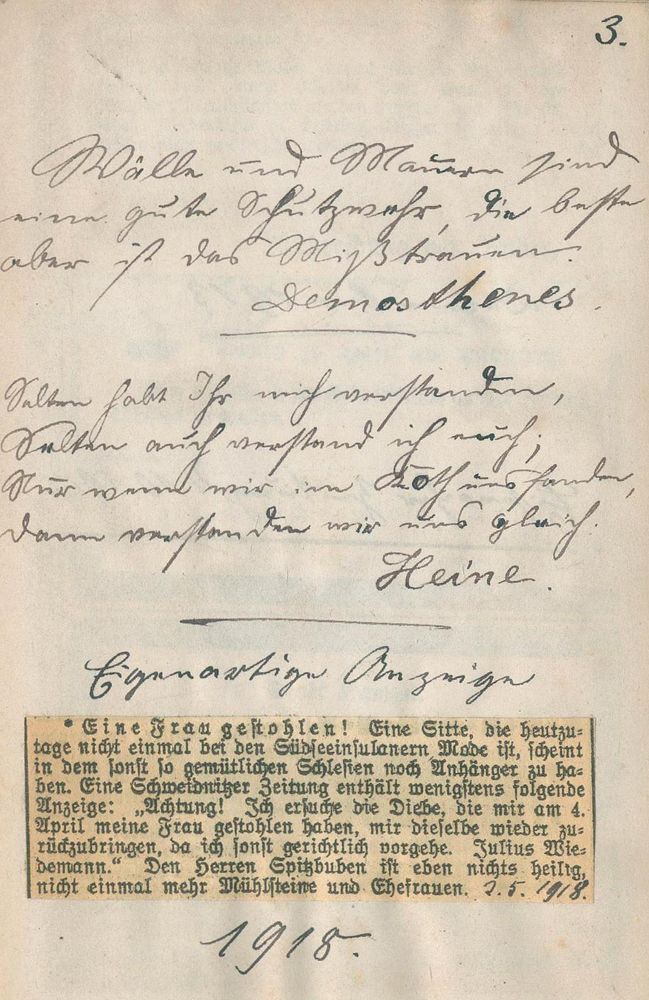 3.
Wälle und Mauern sind
eine gute Schutzwehr, die beste
aber ist das Mißtrauen.
Demosthenes.
Selten habt Ihr mich verstanden,
Selten auch verstand ich euch;
Nur wenn wir im Koth uns fanden,
dann verstanden wir uns gleich.
Heine.
Eigenartige Anzeige
* Eine Frau gestohlen! Eine Sitte, die heutzu-
tage nicht einmal bei den Südseeinsulanern Mode ist, scheint
in dem sonst so gemütlichen Schlesien noch Anhänger zu ha-
ben. Eine Schweidnitzer Zeitung enthält wenigstens folgende
Anzeige: „Achtung! Ich ersuche die Diebe, die mir am 4.
April meine Frau gestohlen haben, mir dieselbe wieder zu-
rückzubringen, da ich sonst gerichtlich vorgehe. Julius Wie-
demann.“ Den Herren Spitzbuben ist eben nichts heilig,
nicht einmal mehr Mühlsteine und Ehefrauen. 2.5.1918.
1918.